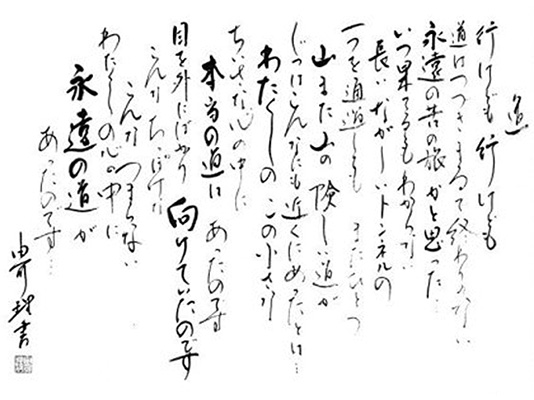 道
行けども 行けども
道はつづきまるで終わりがない
永遠の苦の旅かと思った…
いつ果てるもわからない
長いながーいトンネルの
一つを通過しても またひとつ
山また山の険しい道が
じつはこんなにも近くにあったとは…
わたくしの この小さな
ちいさな心の中に
本当の道は あったのです
目を外にばかり 向けていたのです
こんなちっぽけな
こんなつまらない
わたくしの心の中に
永遠の道が
あったのです…
書